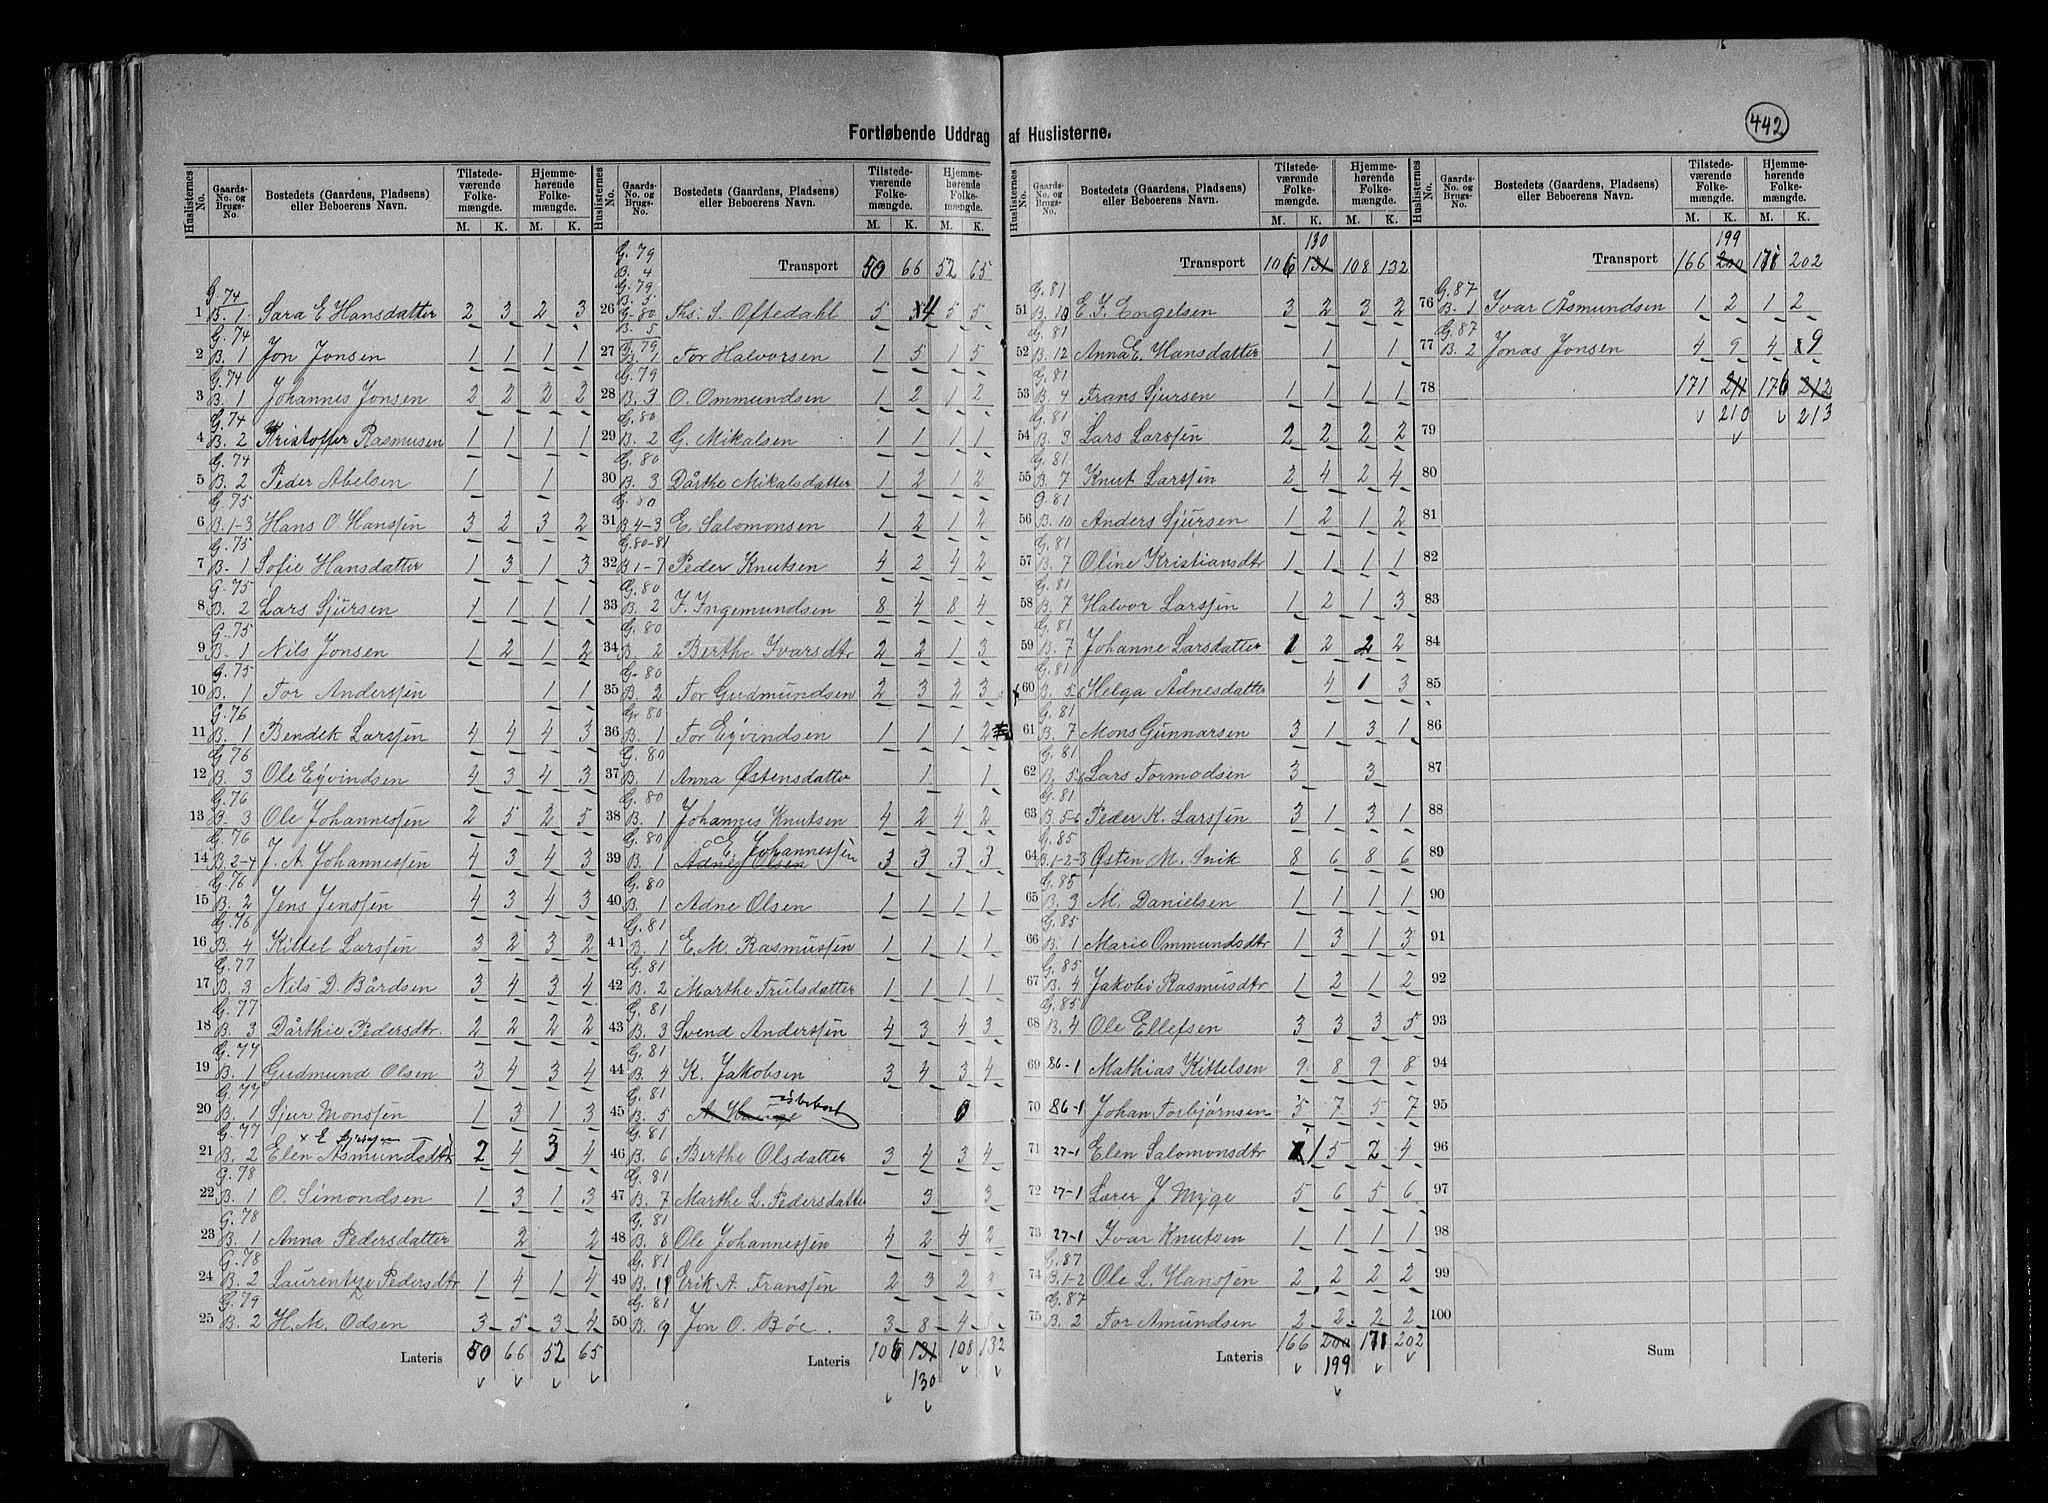 Fortløbende Uddrag af Huslisterne.
442
Huslisternes No. | Gaards-No. og Brugs-No. | Bostedets (Gaardens, Pladsens) eller Beboerens Navn. | Tilstedeværende Folkemængde. M. K. | Hjemmehørende Folkemængde. M. K.
1 G. 74 B. 1 Sara E Hansdatter 2 3 2 3
2 G. 74 B. 1 Jon Jonsen 1 1 1 1
3 G. 74 B. 1 Johannes Jonsen 2 2 2 2
4 G. 74 B. 2 Kristoffer Rasmusen 1 1 1 1
5 G. 74 B. 2 Peder Abelsen 1 1
6 G. 75 B. 1-3 Hans O Hanssen 3 2 3 2
7 G. 75 B. 1 Sofie Hansdatter 1 3 1 3
8 G. 75 B. 2 Lars Sjursen 1 1 1 1
9 G. 75 B. 1 Nils Jonsen 1 2 1 2
10 G. 75 B. 1 Tor Anderssen 1 1
11 G. 76 B. 1 Bendik Larssen 4 4 4 3
12 G. 76 B. 3 Ole Eyvindsen 4 3 4 3
13 G. 76 B. 3 Ole Johannessen 2 5 2 5
14 G. 76 B. 2-4 J. A. Johannessen 4 3 4 3
15 G. 76 B. 2 Jens Jenssen 4 3 4 3
16 G. 76 B. 4 Kittel Larssen 3 2 3 2
17 G. 77 B. 3 Nils D. Bårdsen 3 4 3 4
18 G. 77 B. 3 Dårthie Pedersdtr. 2 2 2 2
19 G. 77 B. 1 Gudmund Olsen 3 4 3 4
20 G. 77 B. 1 Sjur Monssen 1 3 1 3
21 G. 77 B. 2 Elen Asmundsdtr 2 4 3 4
22 G. 78 B. 1 O. Simondsen 1 3 1 3
23 G. 78 B. 1 Anna Pedersdatter 2 2
24 G. 78 B. 2 Laurentze Pedersdtr 1 4 1 4
25 G. 79 B. 2 H. M. Odsen 3 5 3 4
Lateris 50 66 52 65
Huslisternes No. | Gaards-No. og Brugs-No. | Bostedets (Gaardens, Pladsens) eller Beboerens Navn. | Tilstedeværende Folkemængde. M. K. | Hjemmehørende Folkemængde. M. K.
Transport 50 66 52 65
26 G. 79 B. 4 G. 79 B. 5 G. 80 B. 5 Ths: S. Oftedahl 5 4 5 5
27 G. 79 B. 1 Tor Halvorsen 1 5 1 5
28 G. 79 B. 3 O. Ommundsen 1 2 1 2
29 G. 80 B. 2 G. Mikalsen 1 1 1 1
30 G. 80 B. 3 Dårthe Mikalsdatter 1 2 1 2
31 G. 80 B. 4-3 E. Salomonsen 1 2 1 2
32 G. 80-81 B. 1-7 Peder Knutsen 4 2 4 2
33 G. 80 B. 2 J. Ingemundsen 8 4 8 4
34 G. 80 B. 2 Berthe Ivarsdtr 2 2 1 3
35 G. 80 B. 2 Tor Gudmundsen 2 3 2 3
36 G. 80 B. 1 Tor Eyvindsen 1 1 1 2
37 G. 80 B. 1 Anna Østensdatter 1 1
38 G. 80 B. 1 Johannes Knutsen 4 2 4 2
39 G. 80 B. 1 E. Johannessen Ådne Olsen 3 3 3 3
40 G. 80 B. 1 Adne Olsen 1 1 1 1
41 G. 81 B. 1 E. M. Rasmussen 1 1 1 1
42 G. 81 B. 2 Marthe Trulsdatter 1 1 1 1
43 G. 81 B. 3 Svend Anderssen 4 3 4 3
44 G. 81 B. 4 K. Jakobsen 3 4 3 4
45 G. 81 B. 5 A Hauge ubebot 0
46 G. 81 B. 6 Berthe Olsdatter 3 4 3 4
47 G. 81 B. 7 Marthe L. Pedersdatter 3 3
48 G. 81 B. 8 Ole Johannessen 4 2 4 2
49 G. 81 B. 11 Erik A. Franssen 2 3 2 3
50 G. 81 B. 9 Jon O. Bøe. 3 8 4 8
Lateris 106 131 108 132
130
Huslisternes No. | Gaards-No. og Brugs-No. | Bostedets (Gaardens, Pladsens) eller Beboerens Navn. | Tilstedeværende Folkemængde. M. K. | Hjemmehørende Folkemængde. M. K.
130
Transport 106 131 108 132
51 G. 81 B. 10 E. J. Engelsen 3 2 3 2
52 G. 81 B. 12 Anna E. Hansdatter 1 1
53 G. 81 B. 4 Frans Sjursen 1 1 1 1
54 G. 81 B. 3 Lars Larssen 2 2 2 2
55 G. 81 B. 7 Knut Larssen 2 4 2 4
56 G. 81 B. 10 Anders Sjursen 1 2 1 2
57 G. 81 B. 7 Oline Kristiansdtr 1 1 1 1
58 G. 81 B. 7 Halvor Larssen 1 2 1 3
59 G. 81 B. 7 Johanne Larsdatter 1 2 2 2
60 G. 81 B. 5-6 Helga Ådnesdatter 4 1 3
61 G. 81 B. 7 Mons Gunnarsen 3 1 3 1
62 G. 81 B. 5-6 Lars Tormodsen 3 3
63 G. 81 B. 5-6 Peder K. Larssen 3 1 3 1
64 G. 85 B. 1-2-3 Østen M. Snik 8 6 8 6
65 G. 85 B. 3 M. Danielsen 1 1 1 1
66 G. 85 B. 1 Marie Ommundsdtr 1 3 1 3
67 G. 85 B. 4 Jakobe Rasmusdtr 1 2 1 2
68 G. 85 B. 4 Ole Ellefsen 3 3 3 5
69 86-1 Mathias Kittelsen 9 8 9 8
70 86-1 Johan Torbjørnsen 5 7 5 7
71 27-1 Elen Salomonsdtr 1 5 2 4
72 27-1 Lærer J. Myge 5 6 5 6
73 27-1 Ivar Knutsen 1 1 1 1
74 G. 87 B. 1-2 Ole L. Hanssen 2 2 2 2
75 G. 87 B. 2 Tor Amundsen 2 2 2 2
Lateris 166 200 171 202
199
Huslisternes No. | Gaards-No. og Brugs-No. | Bostedets (Gaardens, Pladsens) eller Beboerens Navn. | Tilstedeværende Folkemængde. M. K. | Hjemmehørende Folkemængde. M. K.
199
Transport 166 200 171 202
76 G. 87 B. 1 Ivar Åsmundsen 1 2 1 2
77 G. 87 B. 2 Jonas Jonsen 4 9 4 9
78 171 211 176 212
210 213
79
80
81
82
83
84
85
86
87
88
89
90
91
92
93
94
95
96
97
98
99
100
Sum